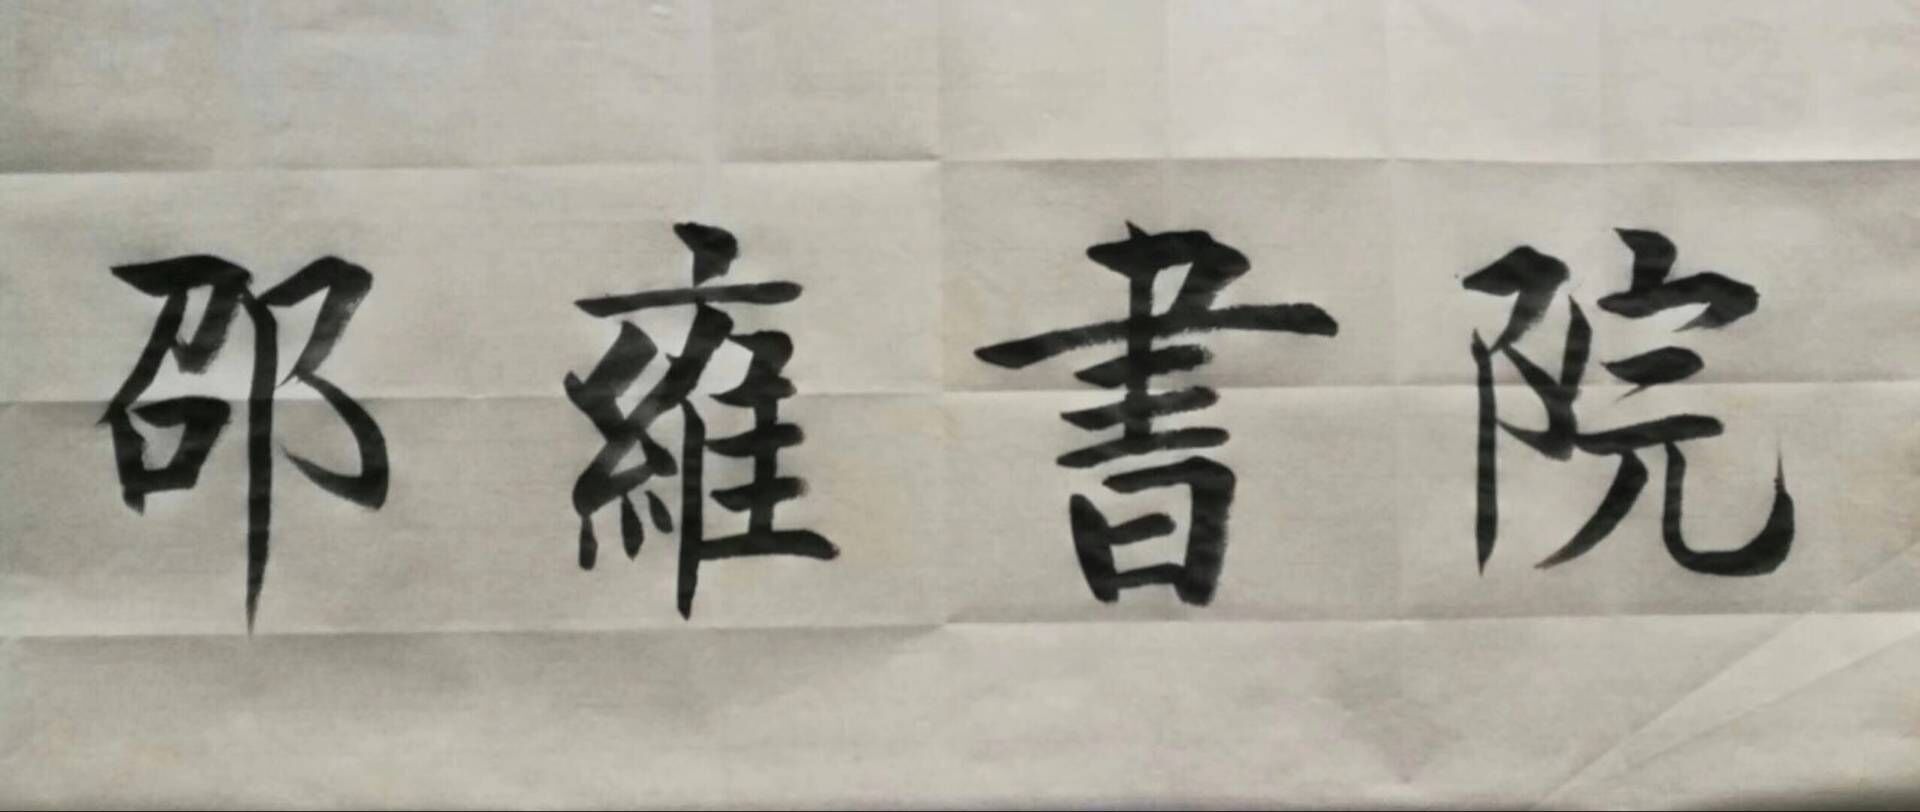 邵雍書院